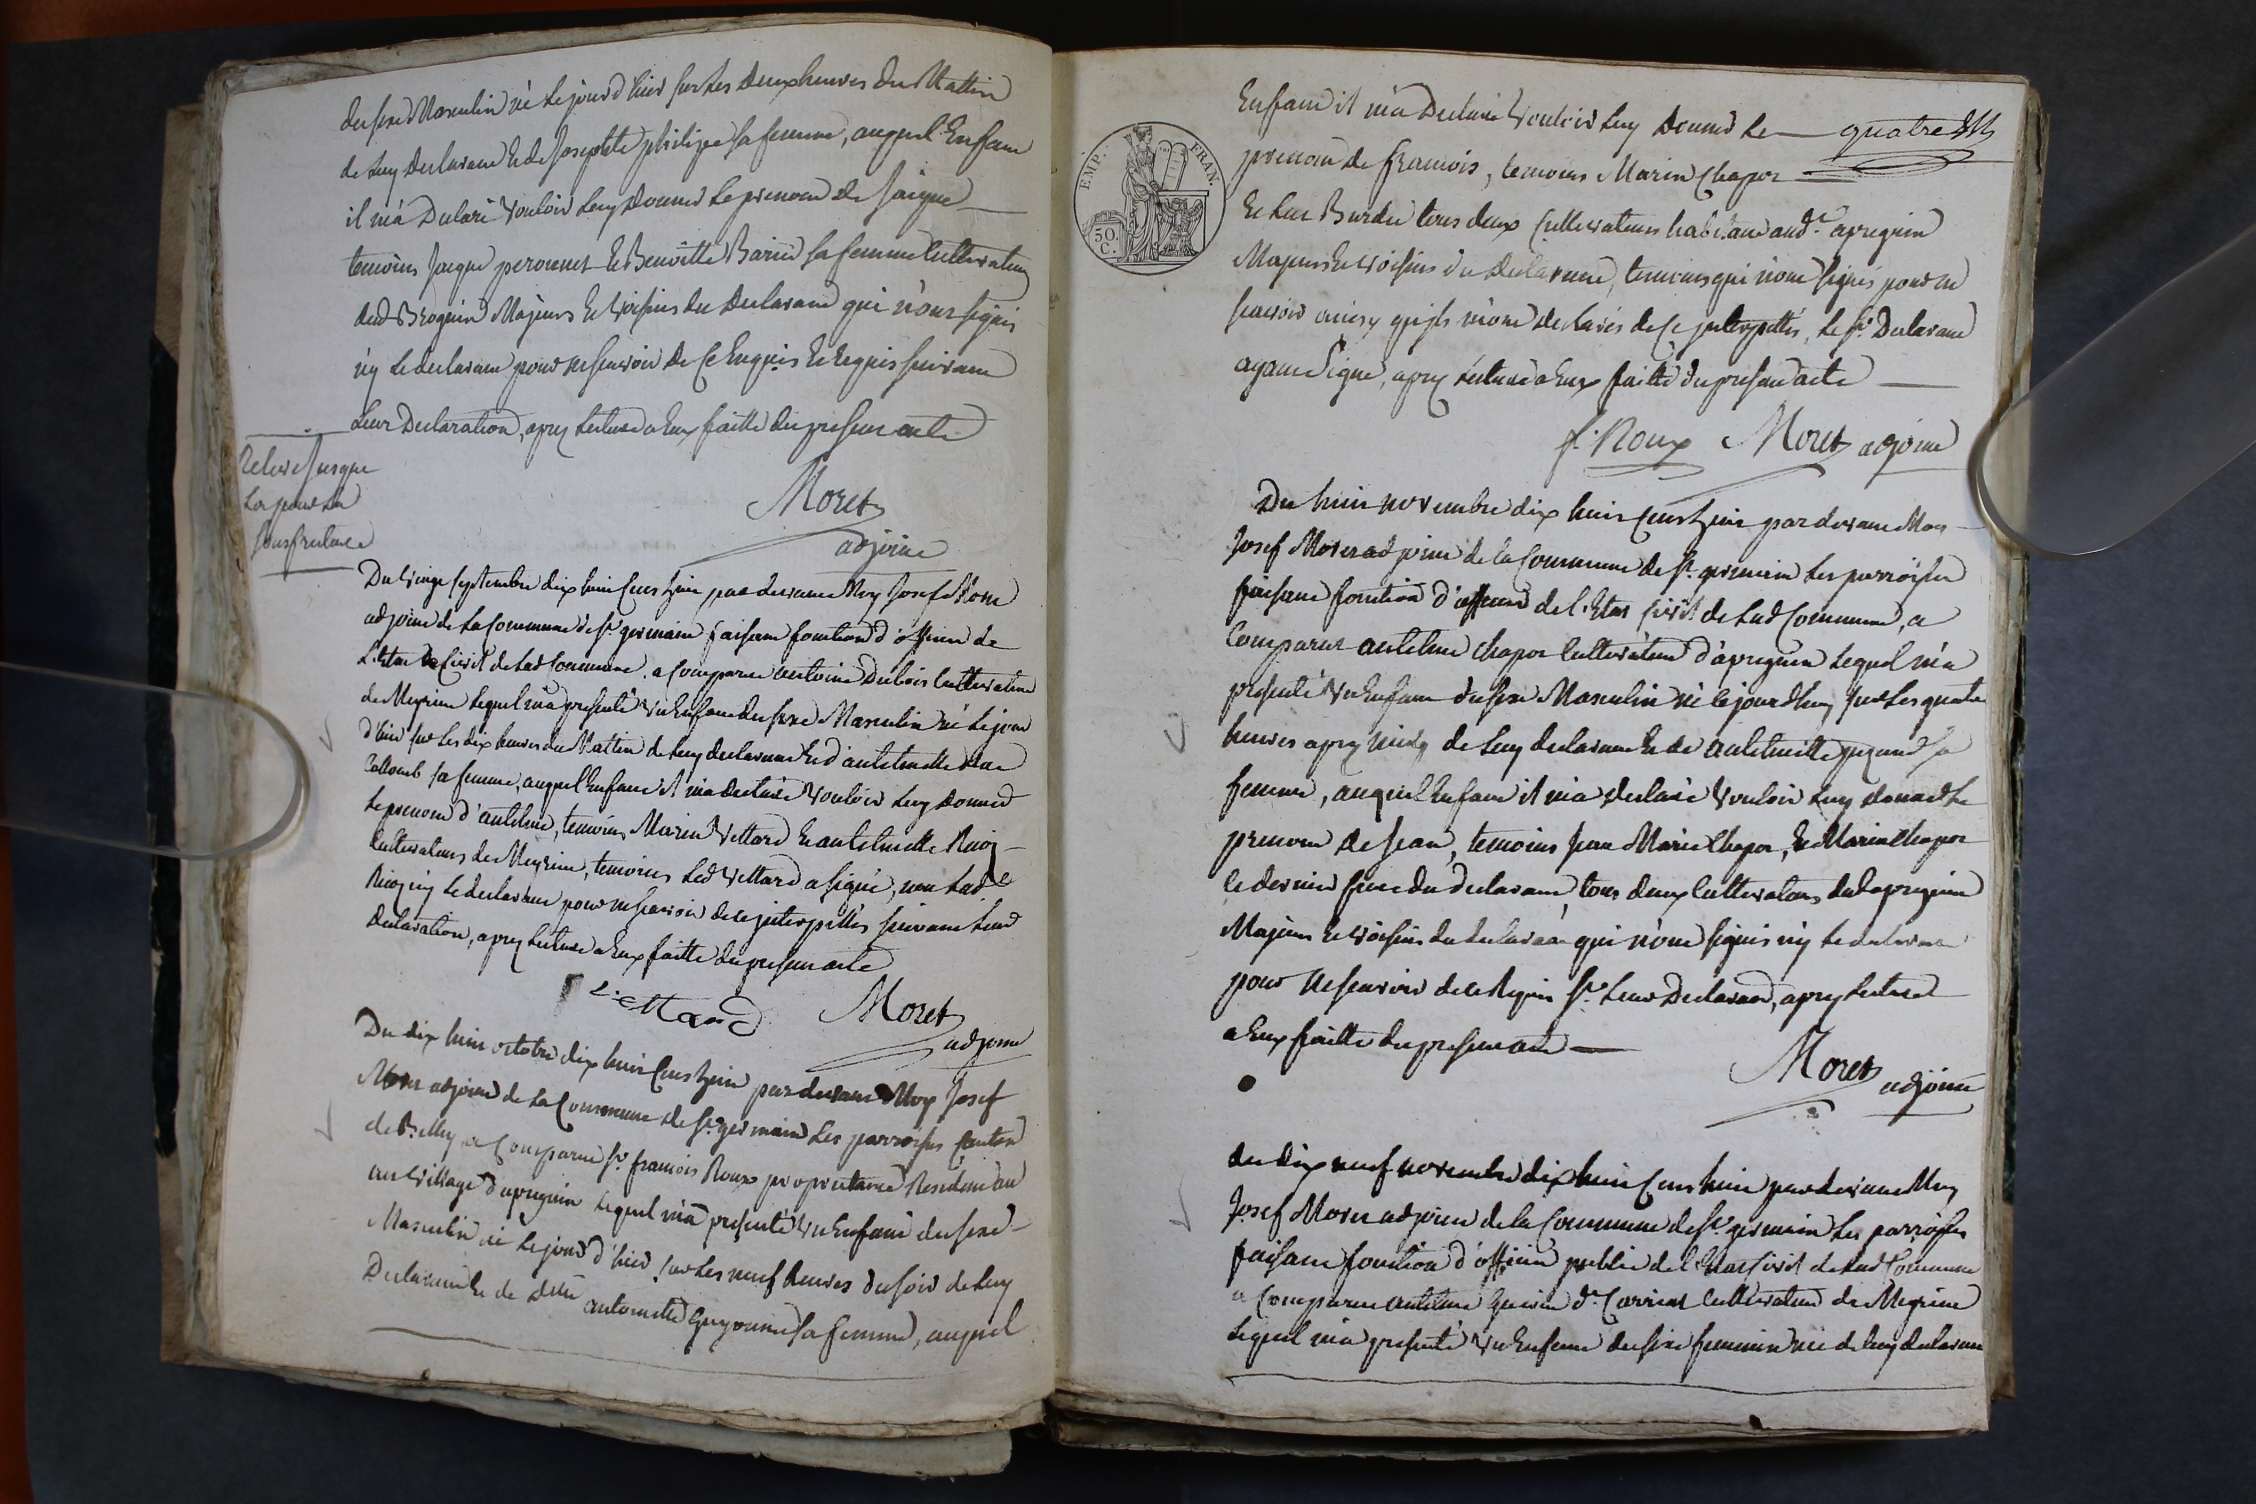 du sexe Masculin né le jour d'hier sur les deux heures du Mattin
de luy declarant et de Josephte philipe sa femme, auquel Enfant
il m'a Déclaré vouloir luy donner le prenom de Jacque
temoins Jacque peronnet et Benoitte Barie sa femme Cultivateurs
dud Brognin Majeurs et voisins du declarant qui n'ont signés
ny le declarant pour ne scavoir de ce Enquis et requis suivant
leur Declaration, apres lecture a Eux faitte du present acte
Relevé Jusque
la pour la
Sousprefecture
Moret
adjoint
Du vingt septembre dix huit Cent huit par devant Moy Josef Moret
adjoint de la Commune de St germain faisant fonction d'officier de
L'Etat Civil de lad Commune. a Comparu antoine Dubois Cultivateur
de Meyrieu lequel m'a presenté un Enfant du sexe Masculin né le jour
d'hier sur les dix heures du Mattin de luy declarant et d'antelmette
Collomb sa femme, auquel Enfant il m'a declaré vouloir luy donner
le prenom d'antelme, temoins Marin Vettard et antelmette
Cultivateurs de Meyrieu, temoins led Vettard a signé, non lad
ny le declarant pour ne scavoir de ce interpellés suivant leur
declaration, apres lecture a Eux faitte du present acte
Vettard Moret
adjoint
Du dix huit octobre dix huit Cent huit par devant Moy Josef
Moret adjoint de la Commune de St germain les parroisses Canton
de Belley a Comparu Sr francois Roux proprietaire Residant au
au village d'apregnin lequel m'a presenté un Enfant du sexe
Masculin né le jour d'hier sur les neuf heures du soir de luy
Declarant et de antoinette Guyonnet sa femme, auquel
EMP. FRAN.
50
C.
Enfant il m'a Declaré vouloir luy donner le quatre
prenom de francois, temoins Marin Chapot
et Luc Burdet tous deux Cultivateurs habitant aud. apregnin
Majeurs et voisins du declarant, temoins qui n'ont signés pour ne
scavoir ainsy qu'ils m'ont declarés de ce interpellés, le Sr Declarant
ayant Signé, apres lecture a Eux faitte du present acte
f. Roux Moret adjoint
Du huit novembre dix huit Cent huit par devant Moy
Josef Moret adjoint de la Commune de St germain les parroisses
faisant fonction d'officier de l'Etat Civil de lad Commune, a
Comparut antelme Chapot Cultivateur d'apregnin lequel m'a
presenté un Enfant du sexe Masculin né ce jourd'huy sur les quatre
heures apres midy de luy declarant et de antelmette sa
femme, auquel Enfant il m'a declaré vouloir luy donner le
prenom de Jean, temoins Jean Marie Chapot, et Marin Chapot
le dernier frere du declarant, tous deux Cultivateurs dud apregnin
Majeurs et voisins du declarant qui n'ont signés ny le declarant
pour ne scavoir de ce Requis St leur Declaration, apres lecture
a Eux faitte du present acte
Moret adjoint
du dix neuf novembre dix huit Cent huit par devant Moy
Josef Moret adjoint de la Commune de St germain les parroisses
faisant fonction d'officier public de l'Etat Civil de lad Commune
a Comparu antelme Cultivateur de Meyrieu
lequel m'a presenté un Enfant du sexe feminin né de luy declarant